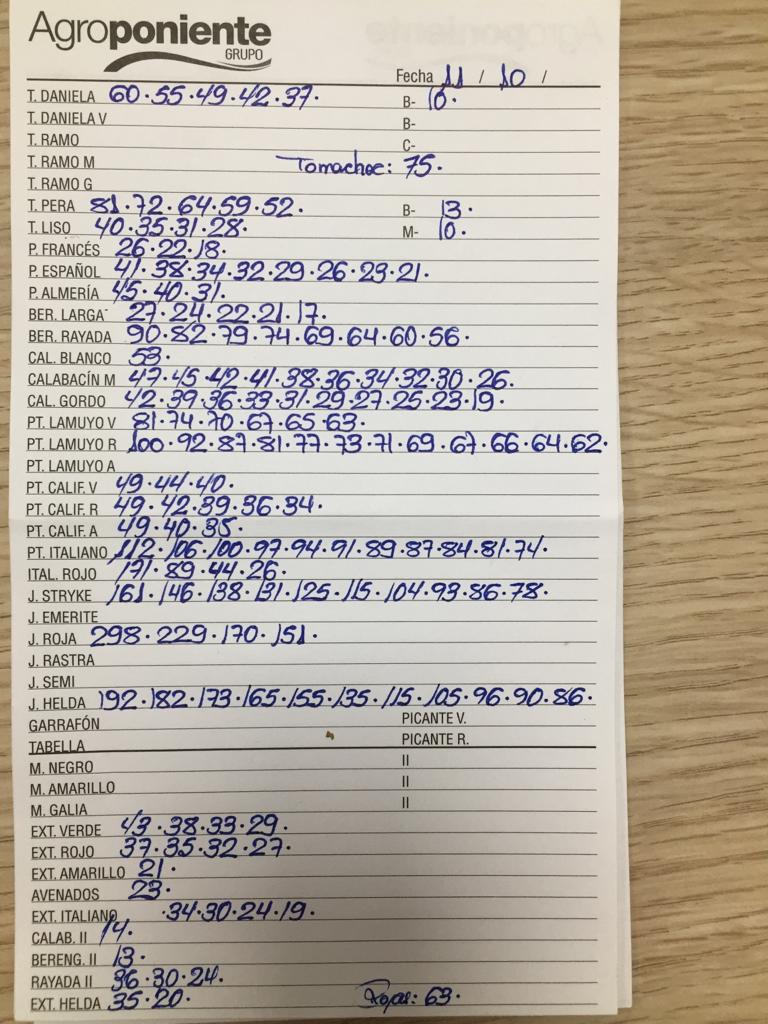 Agroponiente
GRUPO
Fecha 11 / 10 /
T. DANIELA 60·55·49·42·37· B- 10·
T. DANIELA V B-
T. RAMO C-
T. RAMO M Tomachoc: 75·
T. RAMO G
T. PERA 81·72·64·59·52· B- 13·
T. LISO 40·35·31·28· M- 10·
P. FRANCÉS 26·22·18·
P. ESPAÑOL 41·38·34·32·29·26·23·21·
P. ALMERÍA 45·40·31·
BER. LARGA 27·24·22·21·17·
BER. RAYADA 90·82·79·74·69·64·60·56·
CAL. BLANCO 53·
CALABACÍN M 47·45·42·41·38·36·34·32·30·26·
CAL. GORDO 42·39·36·33·31·29·27·25·23·19·
PT. LAMUYO V 81·74·70·67·65·63·
PT. LAMUYO R 100·92·87·81·77·73·71·69·67·66·64·62·
PT. LAMUYO A
PT. CALIF. V 49·44·40·
PT. CALIF. R 49·42·39·36·34·
PT. CALIF. A 49·40·35·
PT. ITALIANO 112·106·100·97·94·91·89·87·84·81·74·
ITAL. ROJO 171·89·44·26·
J. STRYKE 161·146·138·131·125·115·104·93·86·78·
J. EMERITE
J. ROJA 298·229·170·151·
J. RASTRA
J. SEMI
J. HELDA 192·182·173·165·155·135·115·105·96·90·86·
GARRAFÓN PICANTE V.
TABELLA PICANTE R.
M. NEGRO II
M. AMARILLO II
M. GALIA II
EXT. VERDE 43·38·33·29·
EXT. ROJO 37·35·32·27·
EXT. AMARILLO 21·
AVENADOS 23·
EXT. ITALIANO ·34·30·24·19·
CALAB. II 14·
BERENG. II 13·
RAYADA II 36·30·24·
EXT. HELDA 35·20· 63·